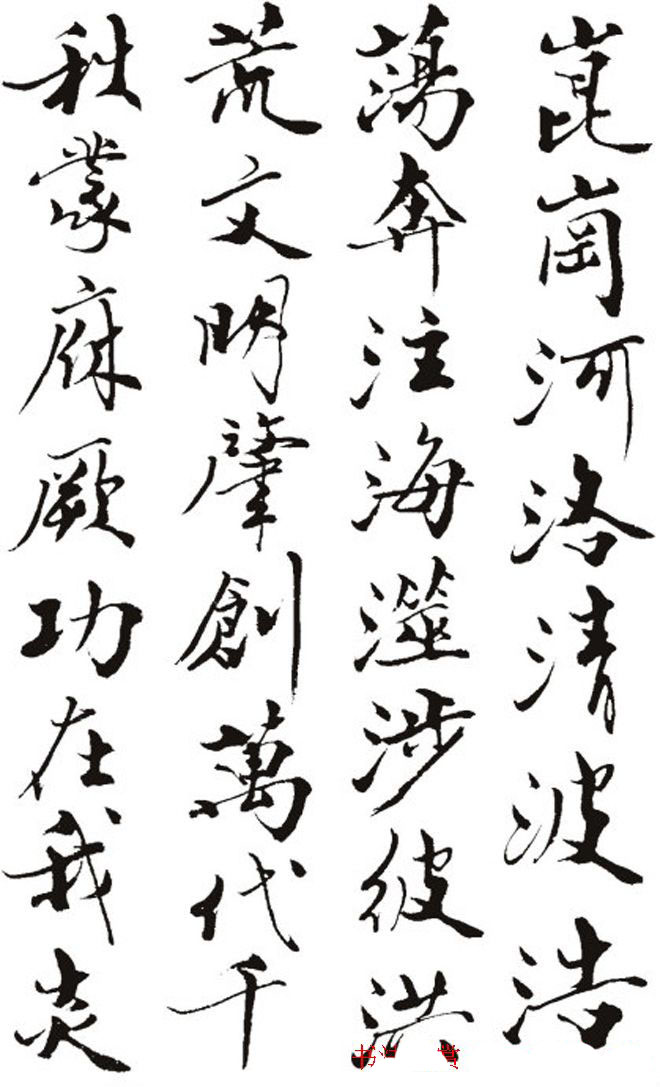 崑崗河洛清波浩
蕩奔注海澨涉彼洪
荒文明肇創萬代千
秋蒙庥厥功在我炎